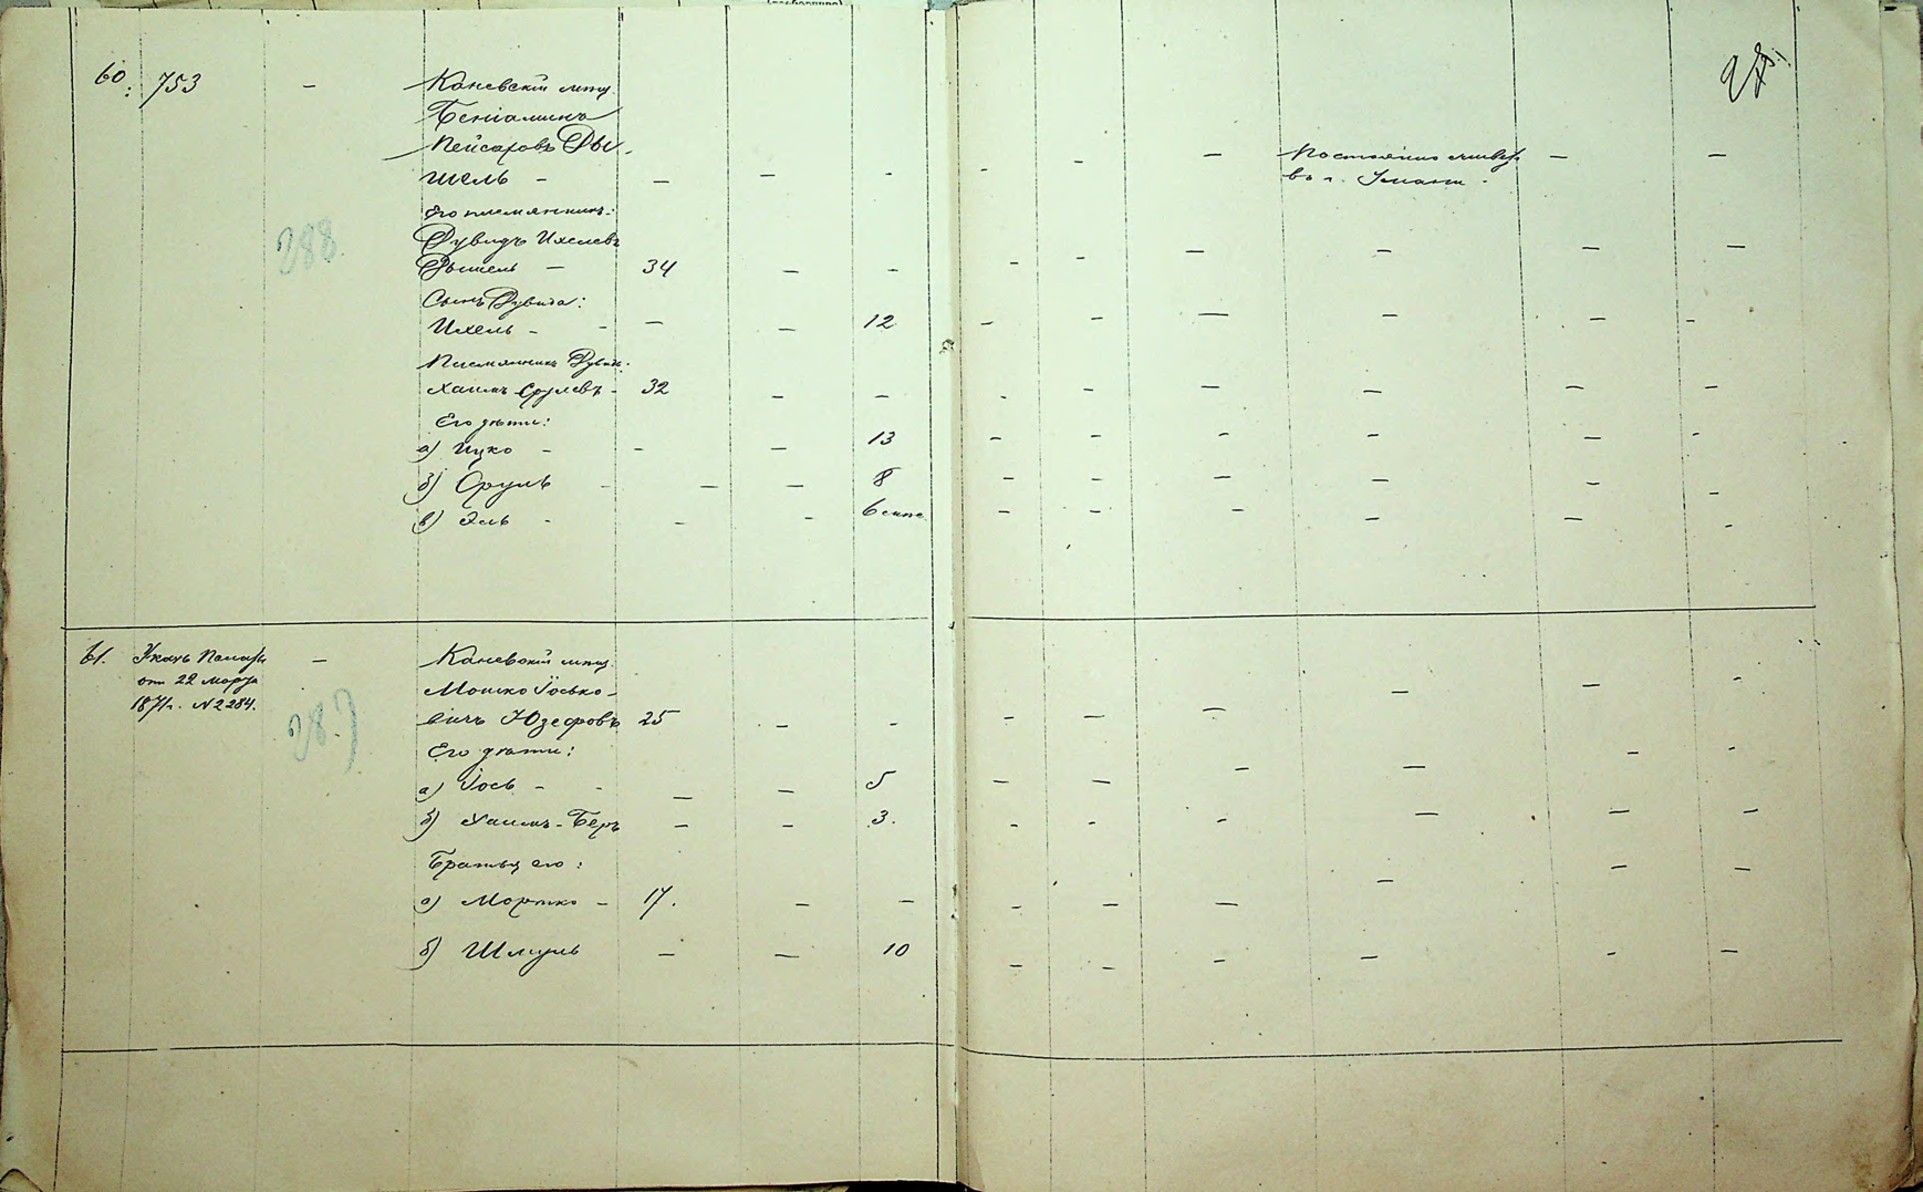 60. 753 — Каневскій мѣщ.
Беніаминъ
Пейсаховъ Ды-
шель — — — -
- - — Постоянно живетъ — —
въ г. Умани.
Его племянникъ:
Дувидъ Ихелевъ
288
Дышель — 34 — -
Сынъ Дувида:
Ихель - - — — 12
Племянникъ Дувида:
Хаимъ Срулевъ - 32 — -
Его дѣти:
а) Ицко - - — 13
б) Сруль - — — 8
в) Эль - - - 6
61. Указъ Палаты — Каневскій мѣщ.
отъ 22 Марта
1871 г. № 2284.
Мошко Іосько-
вичъ Юзефовъ 25 — -
287
Его дѣти:
а) Іось - - — — 5
б) Хаимъ-Беръ — - 3.
Братья его:
а) Мортко - 17. — —
б) Шмуль — — 10